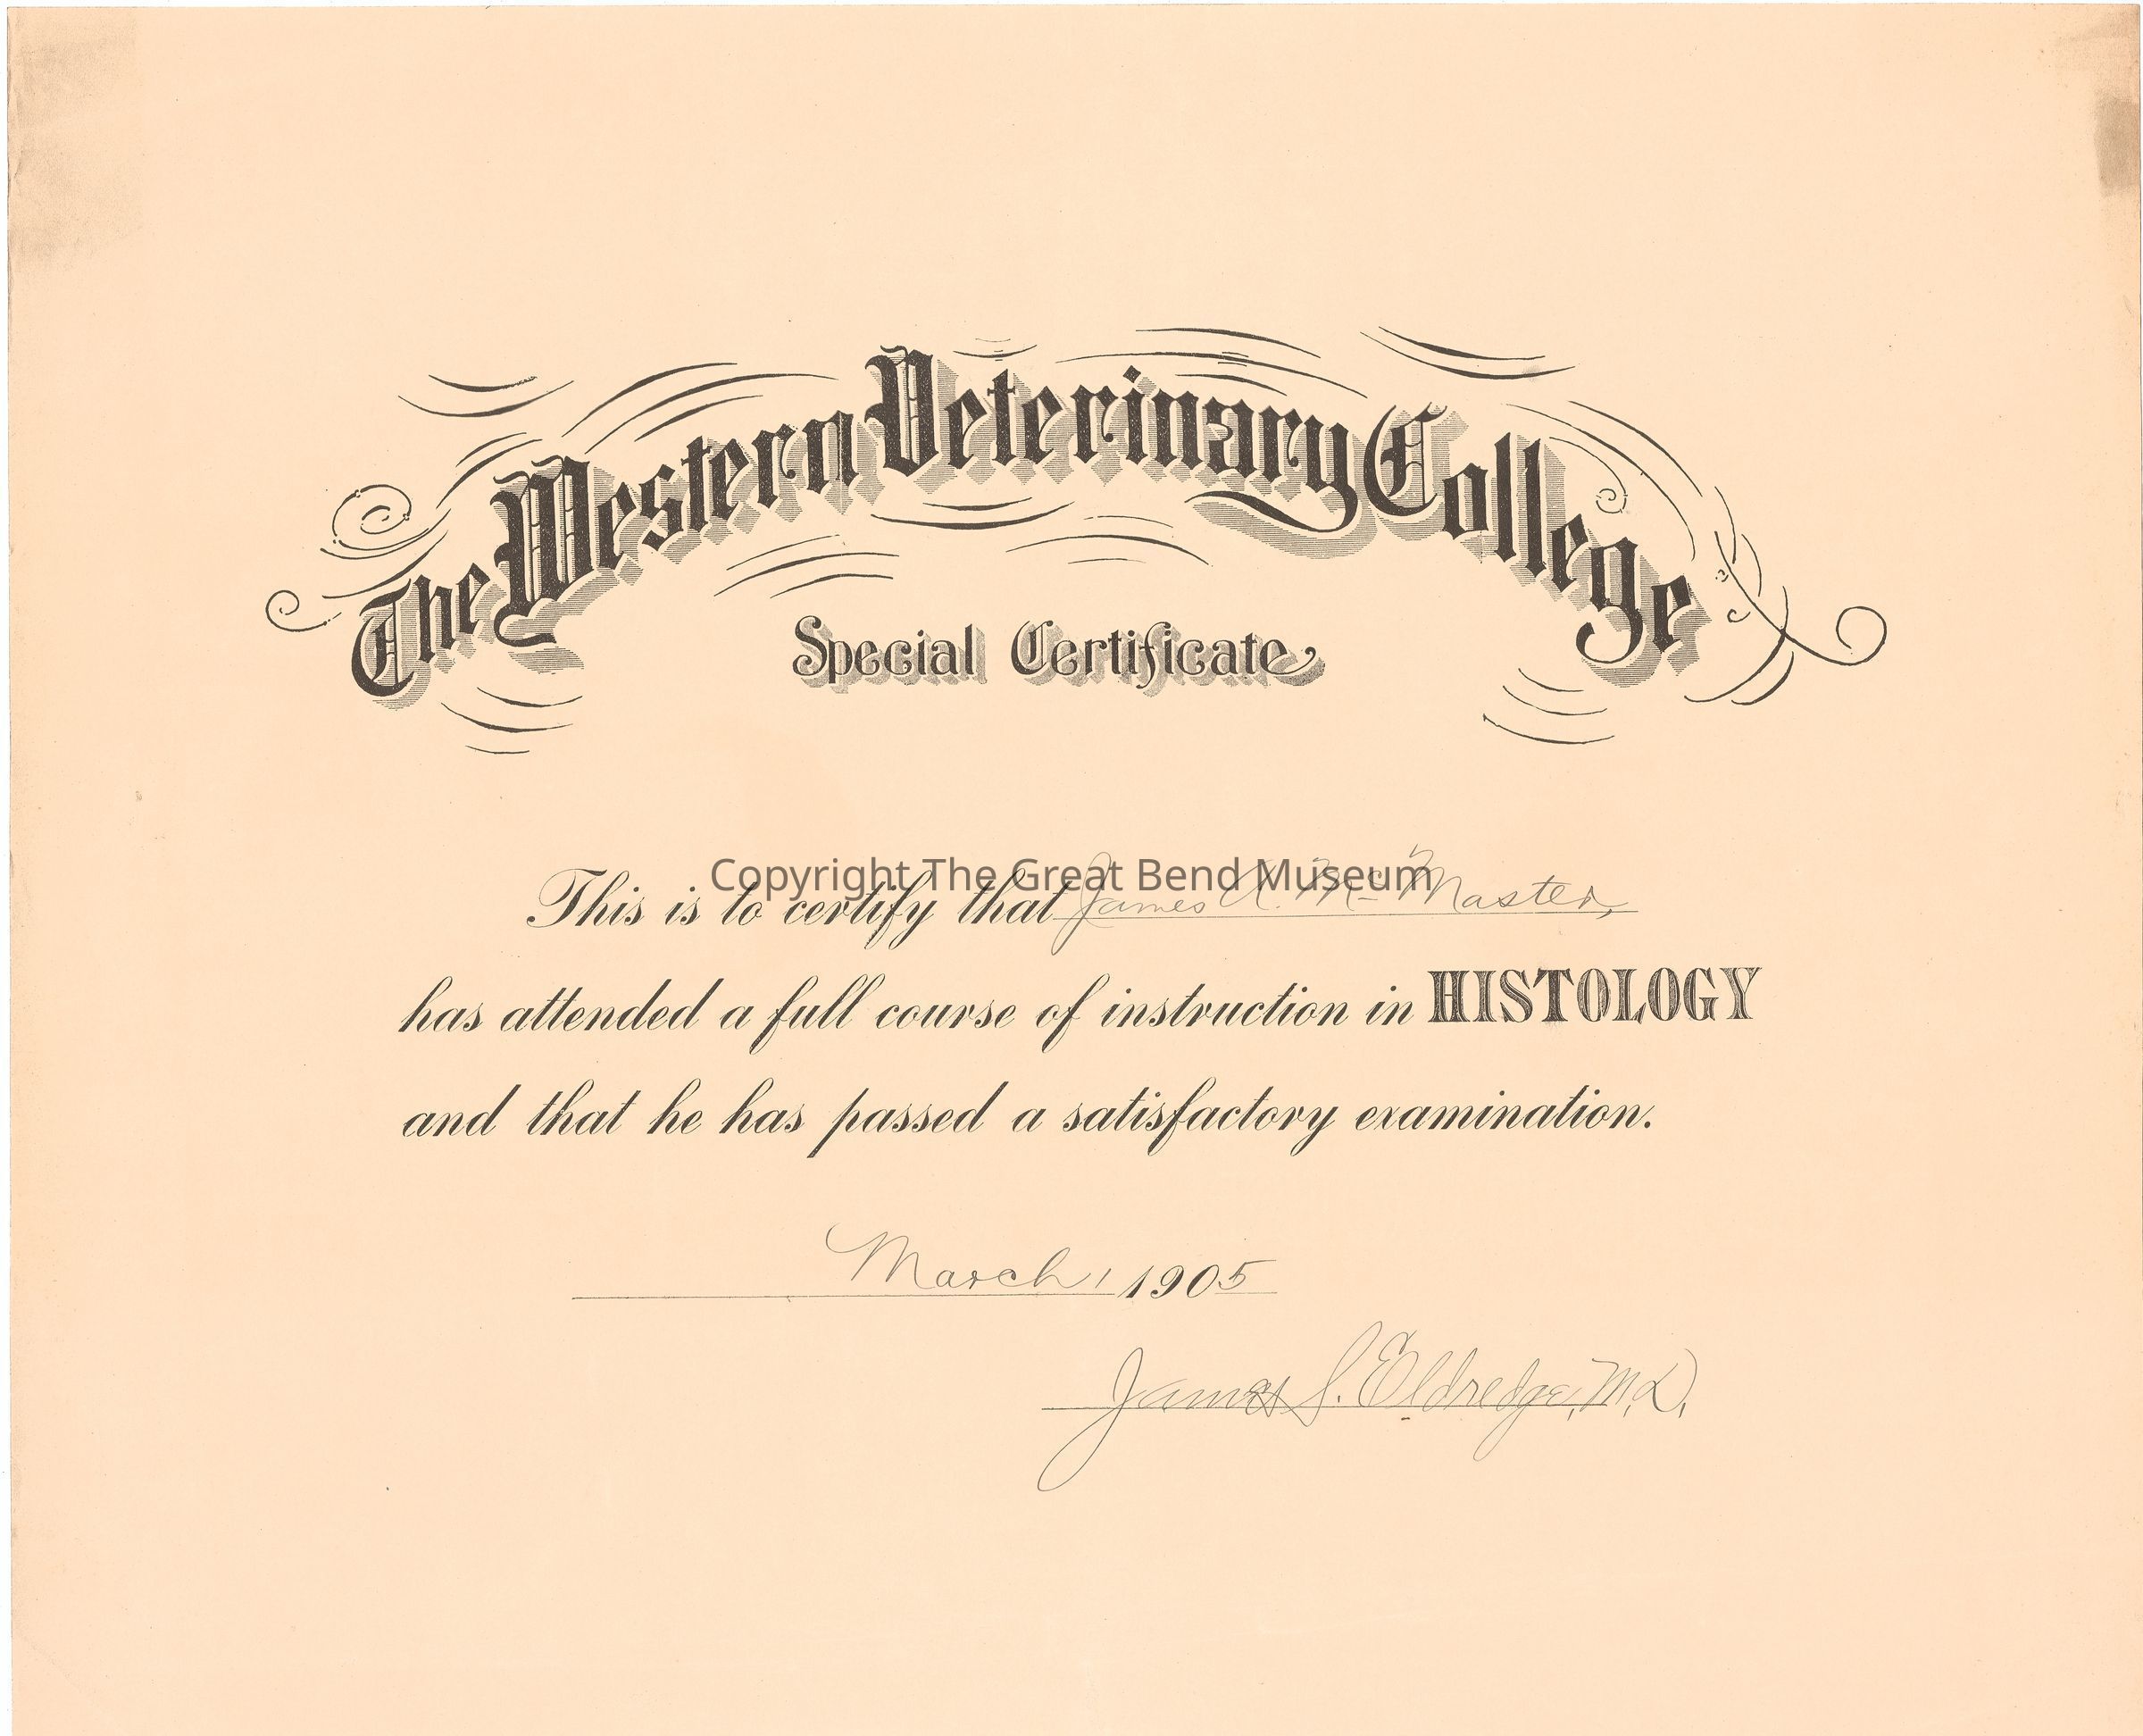 The Western Veterinary College
Special Certificate
Copyright The Great Bend Museum
This is to certify that James A. McMaster,
has attended a full course of instruction in HISTOLOGY
and that he has passed a satisfactory examination.
March, 1905
James S. Eldredge, M.D.